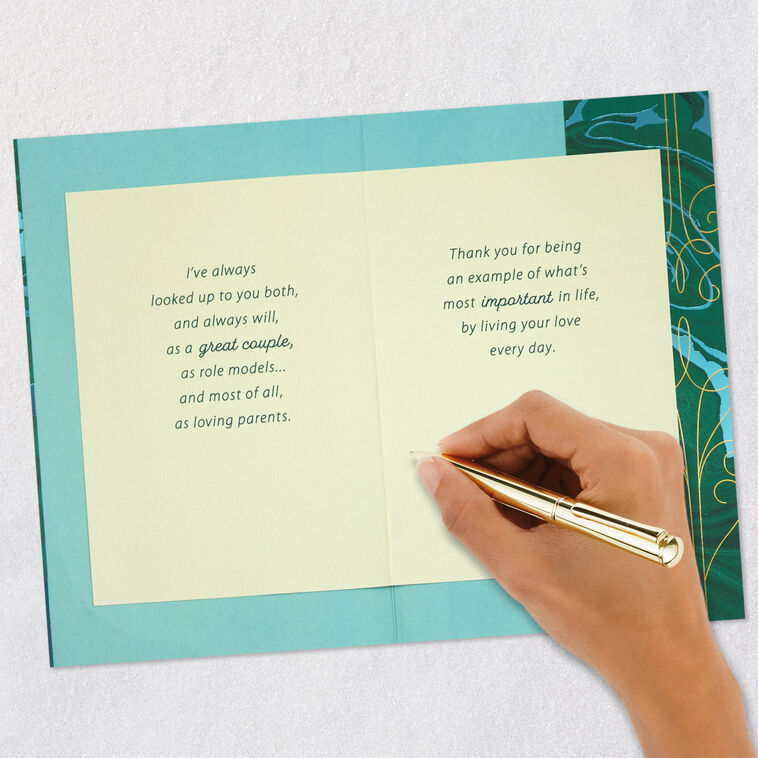 I've always
looked up to you both,
and always will,
as a great couple,
as role models...
and most of all,
as loving parents.
Thank you for being
an example of what's
most important in life,
by living your love
every day.